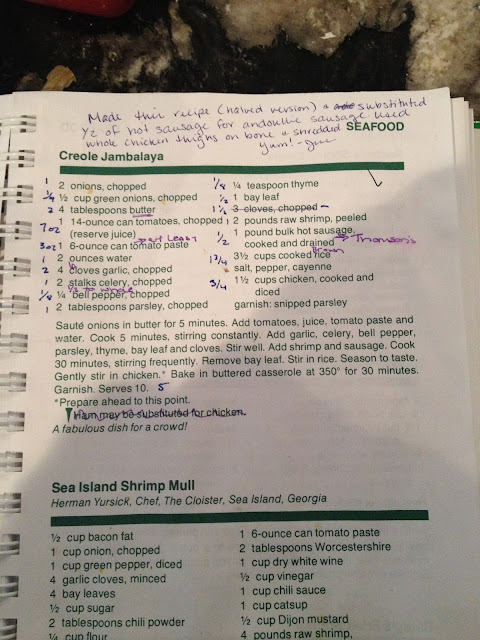 Made this recipe (halved version) & substituted
1/2 of hot sausage for andouille sausage used
whole chicken thighs on bone & shredded
Yum!
SEAFOOD
Creole Jambalaya
1 2 onions, chopped
1/4 ½ cup green onions, chopped
2 4 tablespoons butter
1 14-ounce can tomatoes, chopped
7oz (reserve juice) → at least
3oz 1 6-ounce can tomato paste
1 2 ounces water
2 4 cloves garlic, chopped
1 2 stalks celery, chopped
1/2 to whole
1/8 ¼ bell pepper, chopped
1 2 tablespoons parsley, chopped
1/8 ¼ teaspoon thyme
1/2 1 bay leaf
1 1/2 3 cloves, chopped
1 2 pounds raw shrimp, peeled
1/2 1 pound bulk hot sausage,
cooked and drained → Thomson's
1 3/4 3½ cups cooked rice
Brown
salt, pepper, cayenne
3/4 1½ cups chicken, cooked and
diced
garnish: snipped parsley
Sauté onions in butter for 5 minutes. Add tomatoes, juice, tomato paste and
water. Cook 5 minutes, stirring constantly. Add garlic, celery, bell pepper,
parsley, thyme, bay leaf and cloves. Stir well. Add shrimp and sausage. Cook
30 minutes, stirring frequently. Remove bay leaf. Stir in rice. Season to taste.
Gently stir in chicken.* Bake in buttered casserole at 350° for 30 minutes.
Garnish. Serves 10. 5
*Prepare ahead to this point.
Ham may be substituted for chicken.
A fabulous dish for a crowd!
Sea Island Shrimp Mull
Herman Yursick, Chef, The Cloister, Sea Island, Georgia
½ cup bacon fat
1 cup onion, chopped
1 cup green pepper, diced
4 garlic cloves, minced
4 bay leaves
½ cup sugar
2 tablespoons chili powder
¼ cup flour
1 6-ounce can tomato paste
2 tablespoons Worcestershire
1 cup dry white wine
½ cup vinegar
1 cup chili sauce
1 cup catsup
½ cup Dijon mustard
4 pounds raw shrimp,